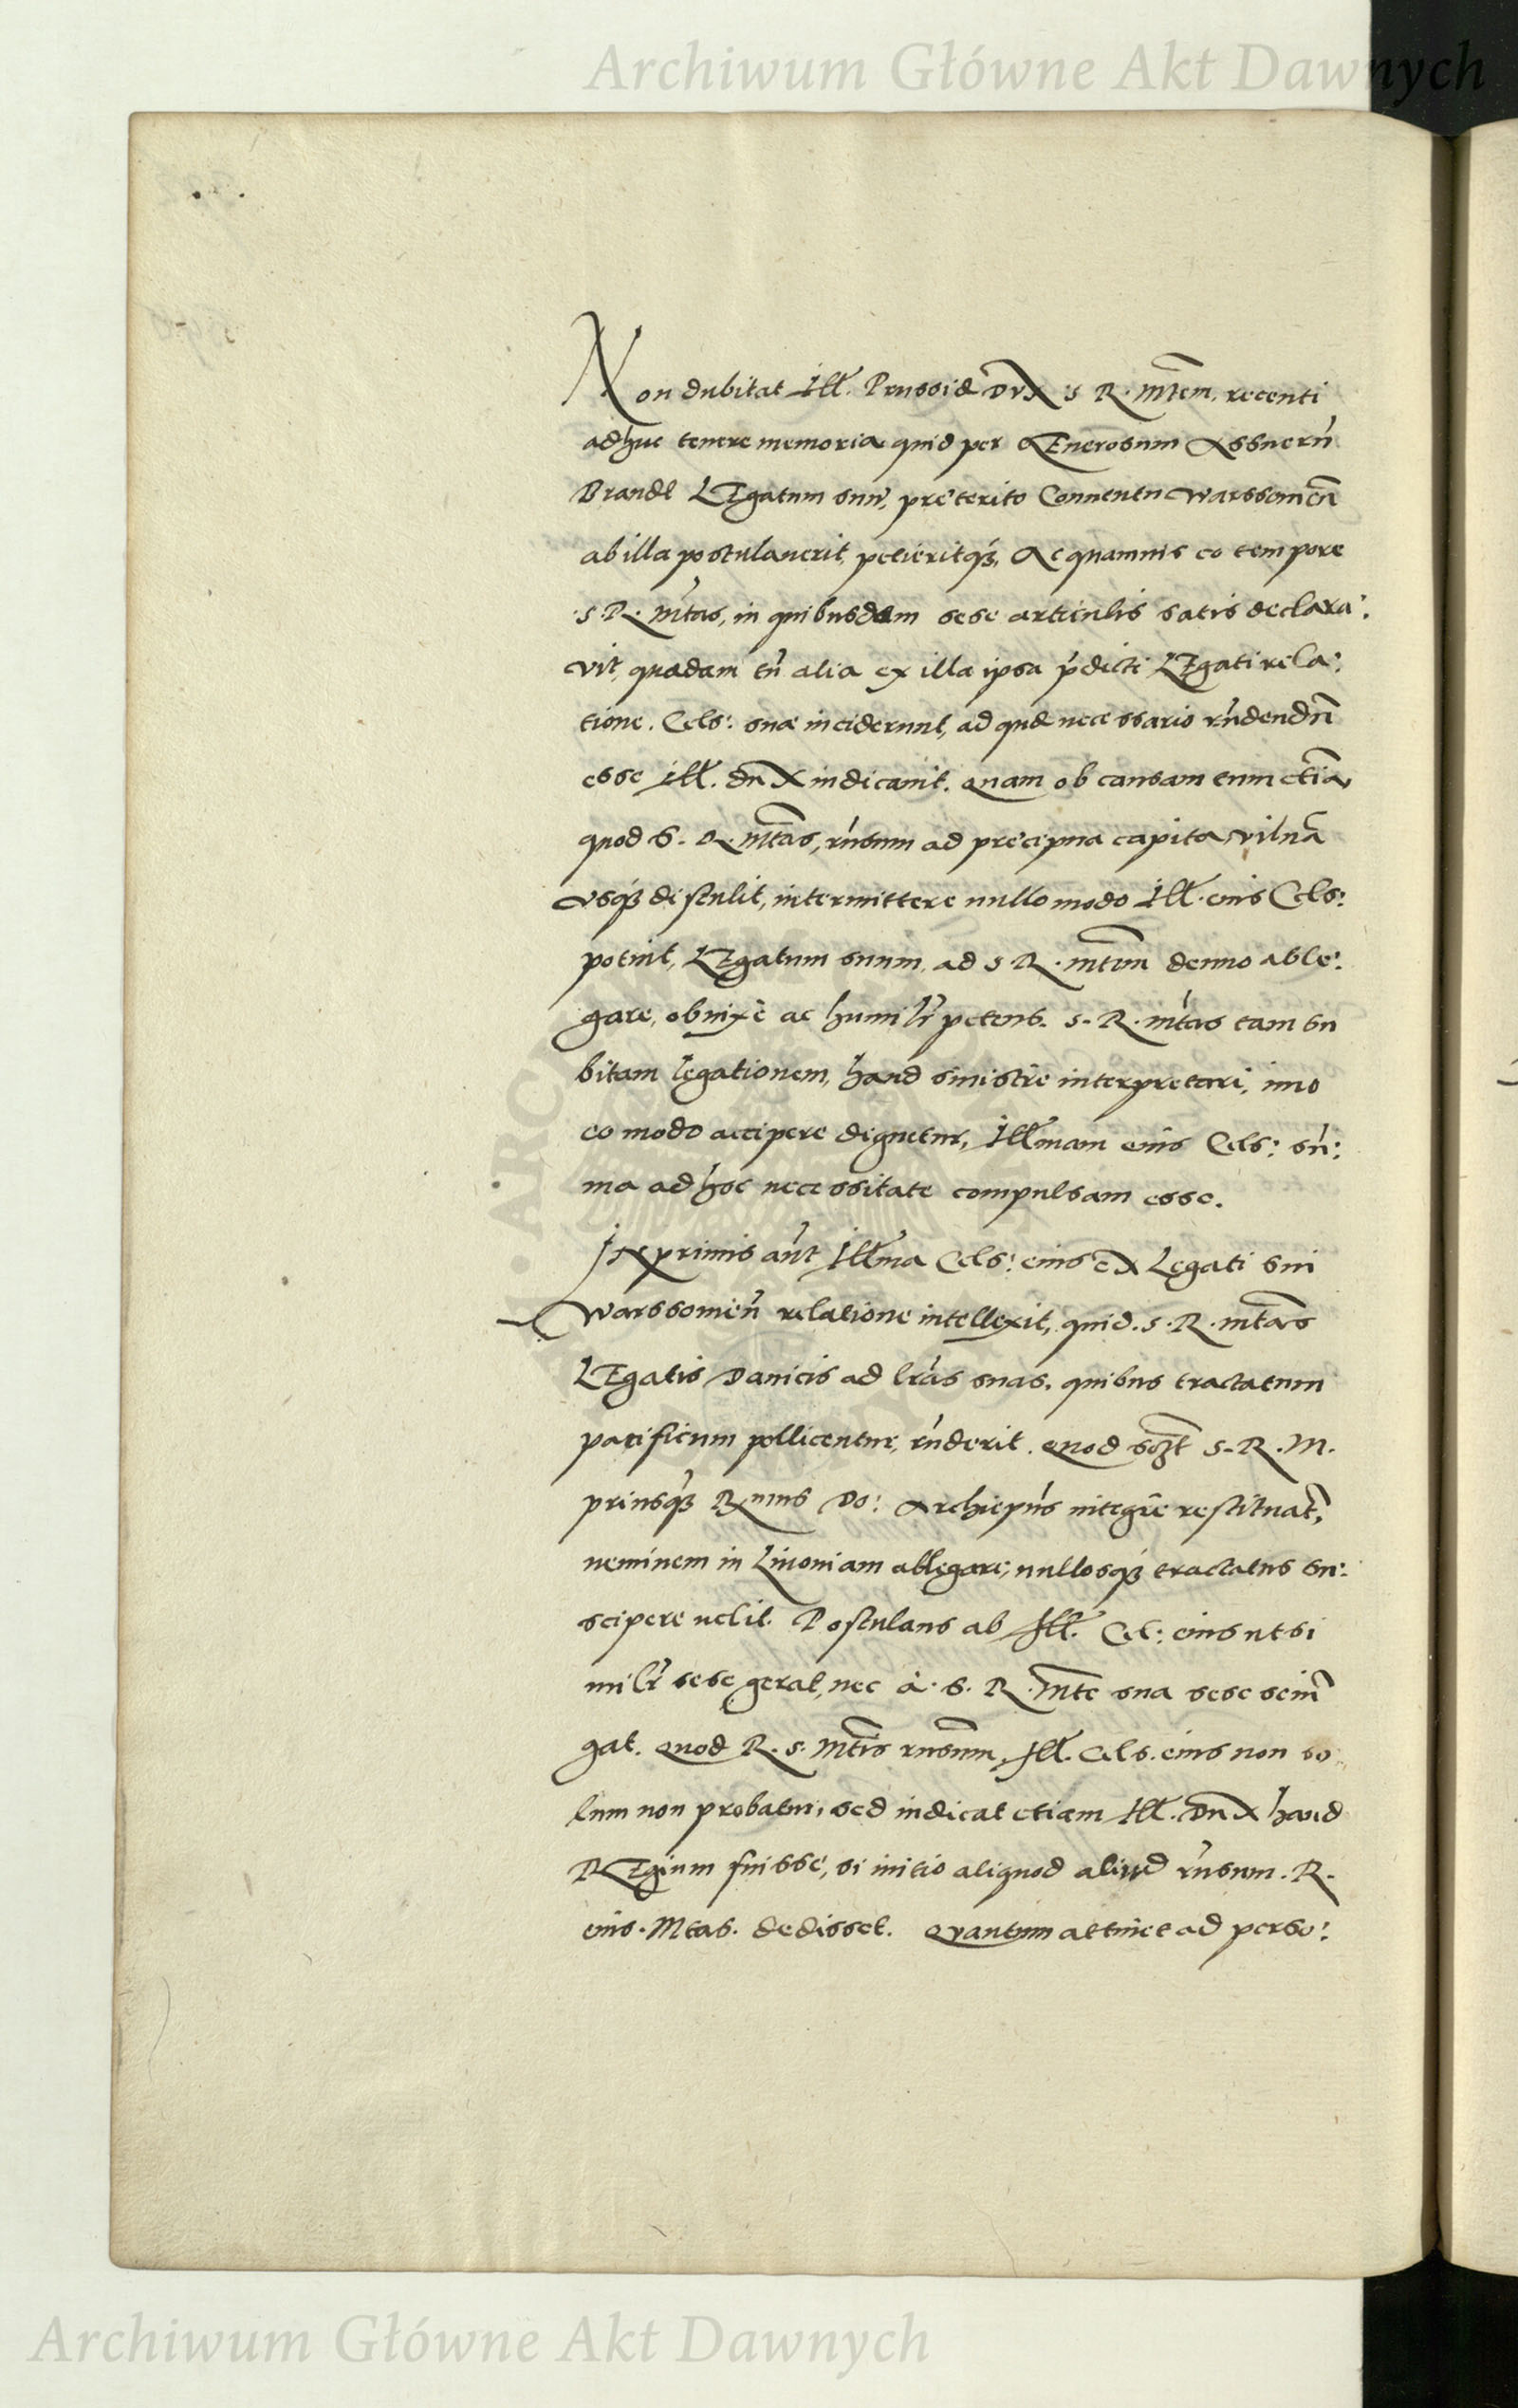 Archiwum Główne Akt Dawnych
Non dubitat Ill. Prussiæ Dux S R. Mtem, recenti
adhuc tenere memoria quid per GEnerosum Assuerũ
Brandt LEgatum suũ, preterito Conuentu Warssouieñ
ab illa postulauerit, petieritq́ꝫ, Ac quamuis eo tempore
S. R. Mtas, in quibusdam sese articulis satis declara:
vit, quædam tñ alia ex illa ipsa p̃dicti LEgati rela:
tione. Cels: suæ inciderunt, ad quæ necessario rñdendũ
esse Ill. dux iudicauit. Quam ob causam cum etiã
quod S. R. Mtas, rñsum ad precipua capita, Vilnã
vsq́ꝫ distulit, intermittere nullo modo Ill. eius Cels:
potuit, LEgatum suum, ad S R. Mtem denuo able:
gare, obnixè ac humilr̃ petens. S. R. Mtas tam su
bitam legationem, haud sinistrè interpretari, imo
eo modo accipere dignetur, Illmam eius Cels: sũ:
ma ad hoc necessitate compulsam esse.
In primis aũt Illma Cels: eius ex Legati sui
Warssouieñ relatione intellexit, quid. S. R. Mtas
LEgatis Danicis ad lr̃as suas, quibus tractatum
pacificum pollicentur, rñderit. Quod sczt S. R. M.
priusq́ꝫ Rmus Do: Archiepũs integrè restituatr̃,
neminem in Liuoniam ablegare, nullosq́ꝫ tractatus su:
scipere uelit. Postulans ab Ill. Cel: eius ut si
milr̃ sese gerat, nec à. S. R. Mte sua sese seiun
gat. Quod R. S. Mtis rñsum, Ill. Cels. eius non so
lum non probatur, sed iudicat etiam Ill. Dux haud
REgium fuisse, si initio aliquod aliud rñsum. R.
eius. Mtas. dedisset. Quantum attinet ad perso:
Archiwum Główne Akt Dawnych